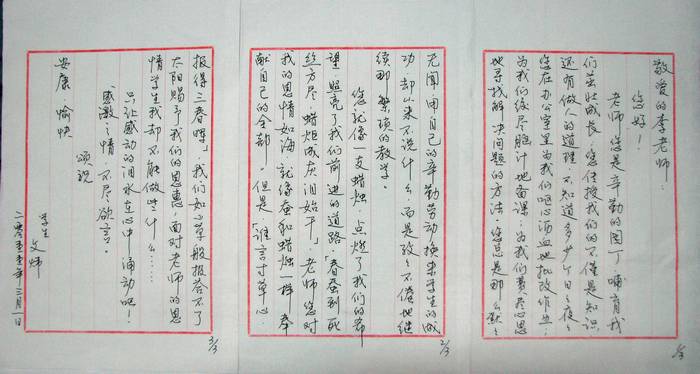 敬爱的李老师：
您好！
老师，您是辛勤的园丁，哺育我
们茁壮成长，您传授我们的不仅是知识，
还有做人的道理。不知道多少个日日夜夜，
您在办公室里为我们呕心沥血地批改作业；
为我们绞尽脑汁地备课；为我们费尽心思
地寻找解决问题的方法。您总是那么默默
1/3
无闻，用自己的辛勤劳动换来学生的成
功，却从来不说什么，而是孜孜不倦地继
续那繁琐的教学。
您就像一支蜡烛，点燃了我们的希
望，照亮了我们前进的道路，「春蚕到死
丝方尽，蜡炬成灰泪始干」，老师，您对
我的恩情如海，就像蚕和蜡烛一样，奉
献自己的全部。但是，「谁言寸草心，
2/3
报得三春晖」，我们如小草般报答不了
太阳赐予我们的恩惠，面对老师的恩
情学生我却不能做些什么……
只让感动的泪水在心中涌动吧！
感激之情，不尽欲言。
颂祝
安康 愉快
学生
文炜
年三月一日
3/3